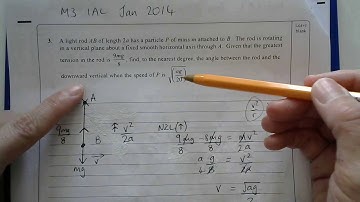 M3 IAL Jan 2014
Leave blank
3. A light rod AB of length 2a has a particle P of mass m attached to B. The rod is rotating
in a vertical plane about a fixed smooth horizontal axis through A. Given that the greatest
tension in the rod is 9mg/8, find, to the nearest degree, the angle between the rod and the
downward vertical when the speed of P is √(ag/20)
A
9mg/8
B
mg
v
v²/2a
N2L(↑)
9mg/8 - 8mg/8 = mv²/2a
g/8 = v²/2a
v = √ag/2
v²/r